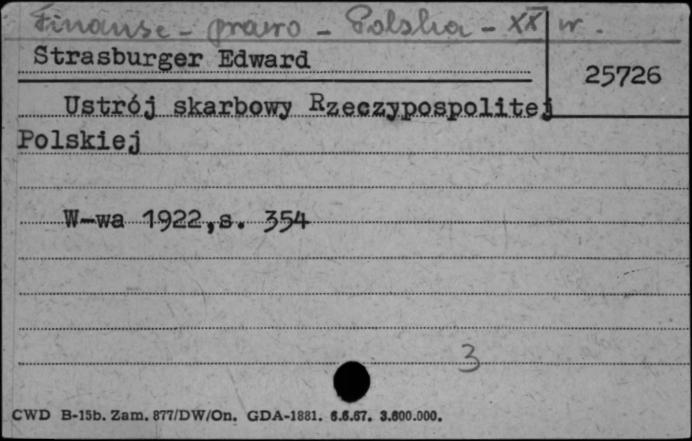 Finanse - prawo - Polska - XX w.
Strasburger Edward
25726
Ustrój skarbowy Rzeczypospolitej
Polskiej
W-wa 1922,s. 354
3
CWD B-15b. Zam. 877/DW/On. GDA-1881. 6.6.67. 3.600.000.